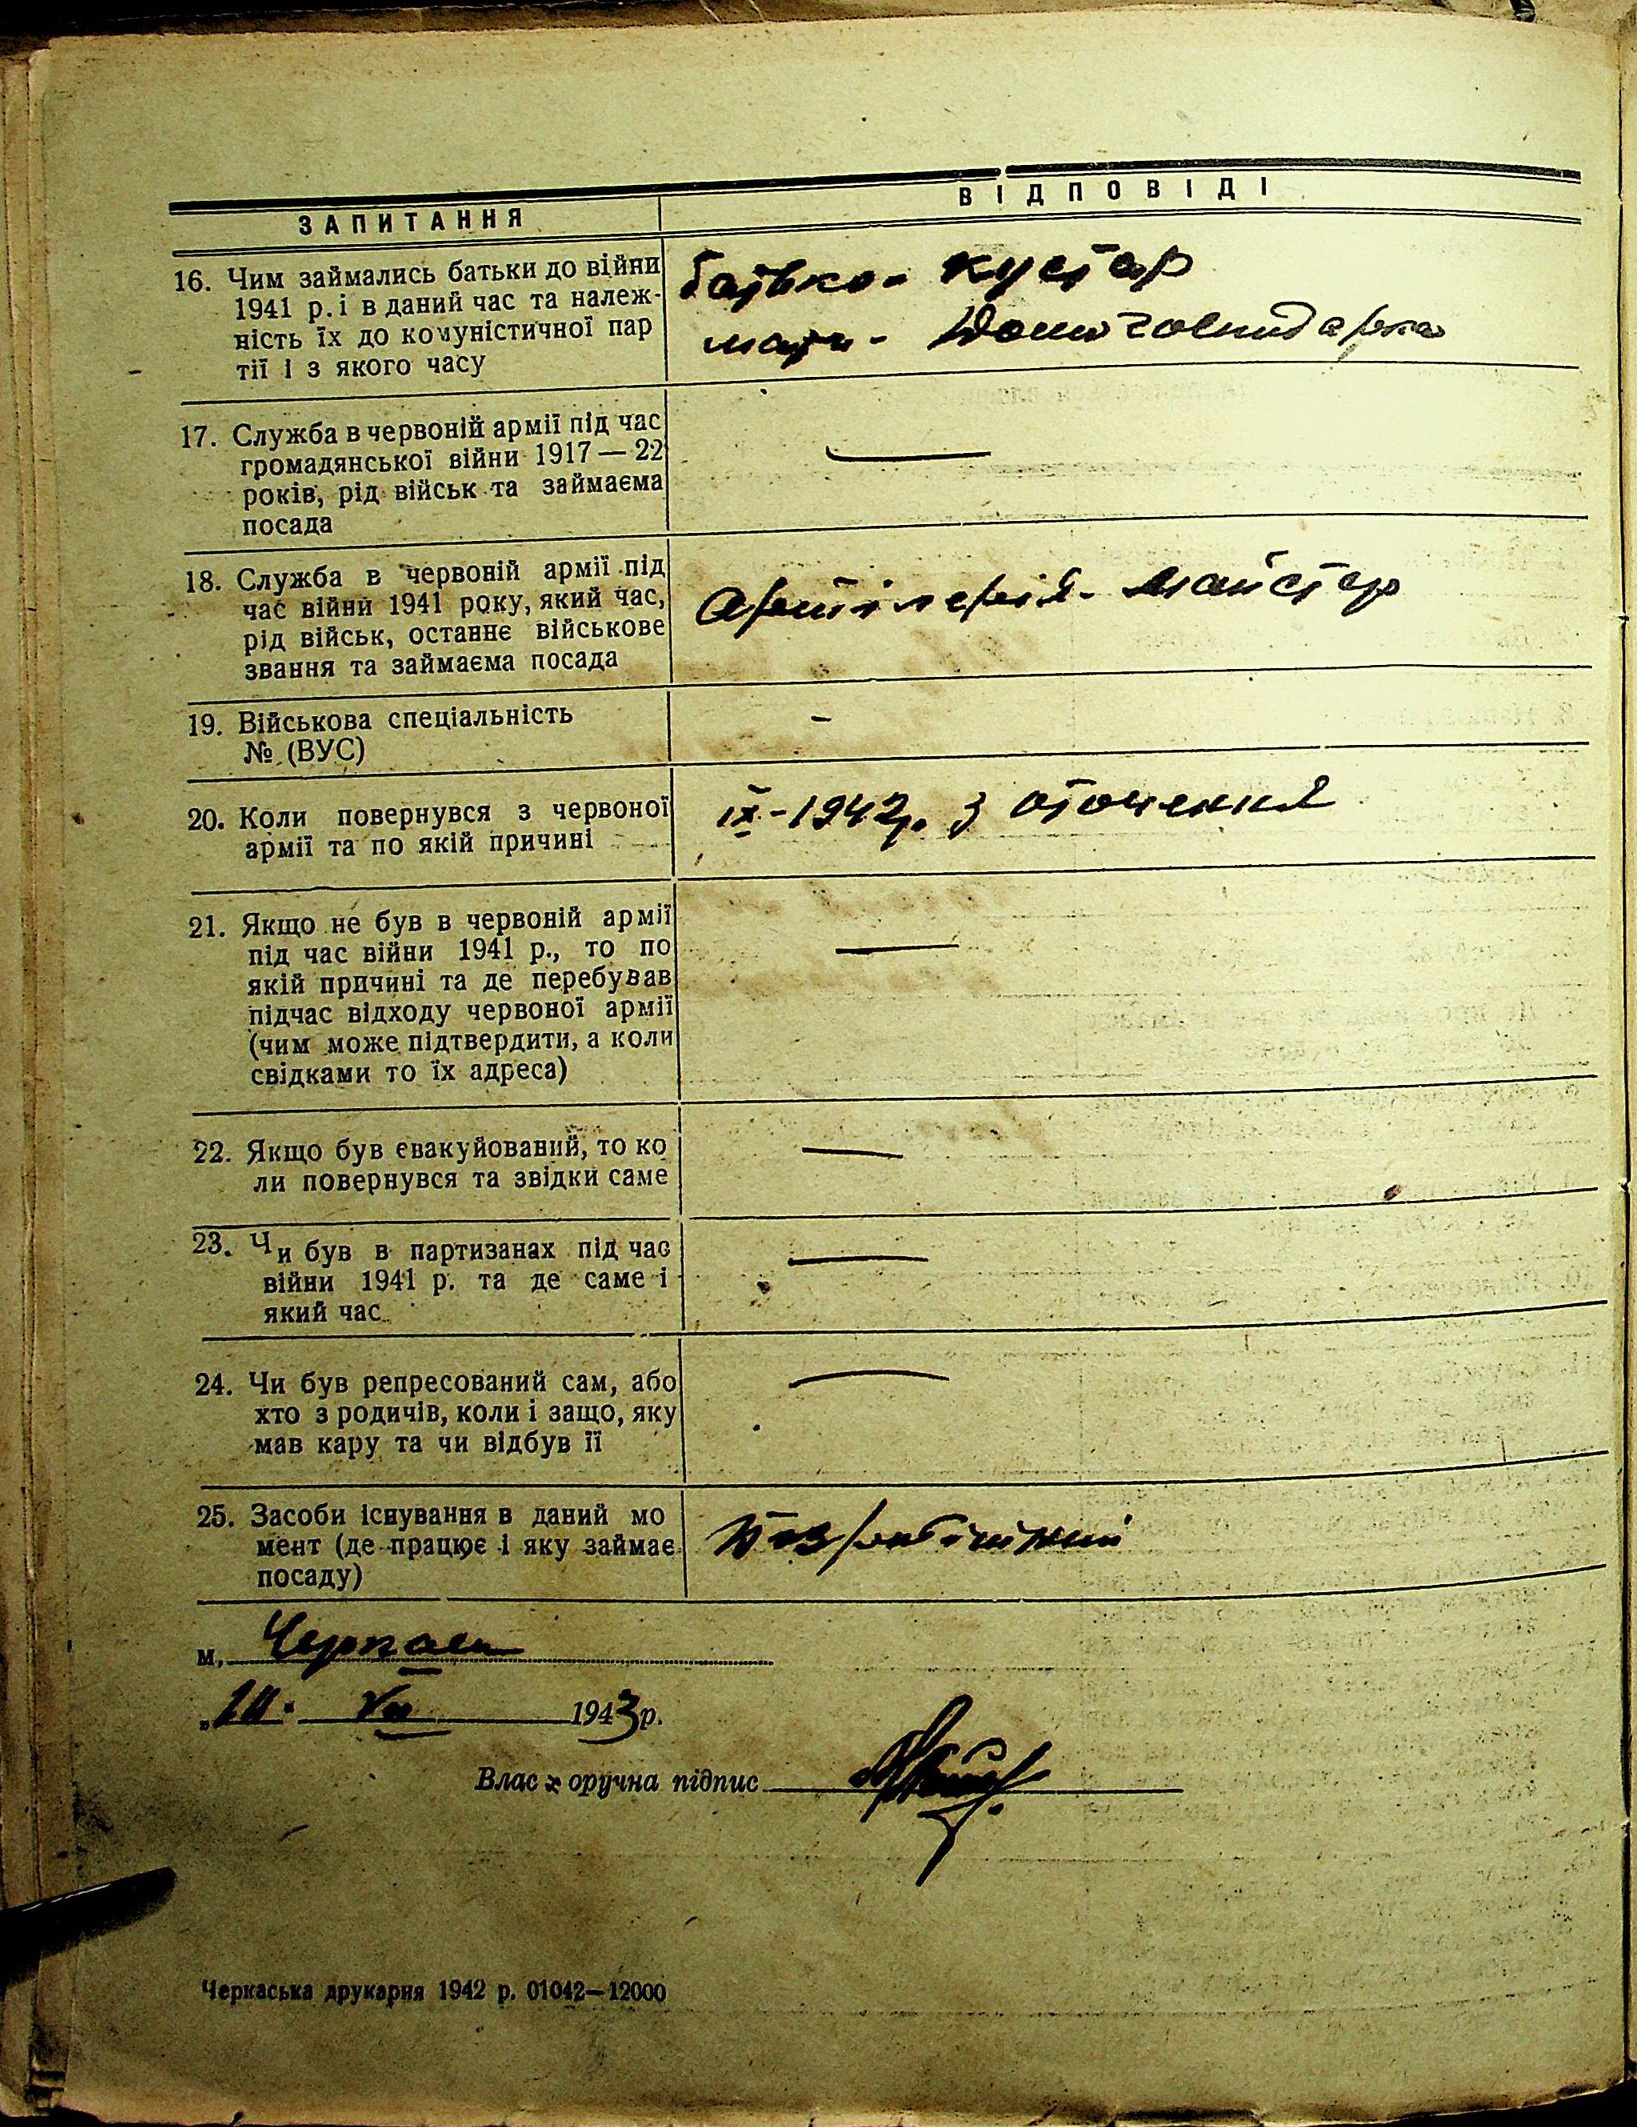 ЗАПИТАННЯ
ВІДПОВІДІ
16. Чим займались батьки до війни
1941 р. і в даний час та належ-
ність їх до комуністичної пар
тії і з якого часу
батько - кустар
мати - домогосподарка
17. Служба в червоній армії під час
громадянської війни 1917 — 22
років, рід військ та займаєма
посада
—
18. Служба в червоній армії під
час війни 1941 року, який час,
рід військ, останнє військове
звання та займаєма посада
Артілерія - майстер
19. Військова спеціальність
№ (ВУС)
-
20. Коли повернувся з червоної
армії та по якій причині
ІХ - 1942р. з оточення
21. Якщо не був в червоній армії
під час війни 1941 р., то по
якій причині та де перебував
підчас відходу червоної армії
(чим може підтвердити, а коли
свідками то їх адреса)
—
22. Якщо був евакуйований, то ко
ли повернувся та звідки саме
—
23. Чи був в партизанах під час
війни 1941 р. та де саме і
який час
—
24. Чи був репресований сам, або
хто з родичів, коли і защо, яку
мав кару та чи відбув її
—
25. Засоби існування в даний мо
мент (де працює і яку займає
посаду)
Безробітний
м. Черкаси
VII 1943 р.
Власноручна підпис
Черкаська друкарня 1942 р. 01042—12000